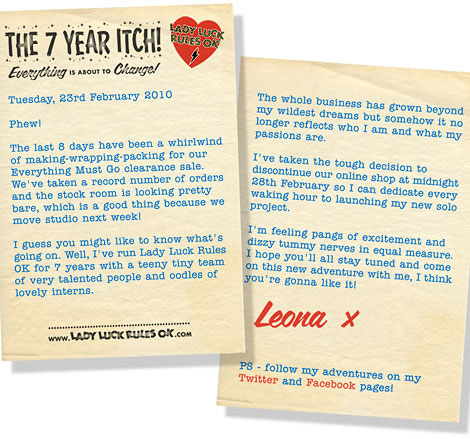 THE 7 YEAR ITCH!
LADY LUCK
RULES OK
Everything IS ABOUT TO Change!
Tuesday, 23rd February 2010
Phew!
The last 8 days have been a whirlwind
of making-wrapping-packing for our
Everything Must Go clearance sale.
We've taken a record number of orders
and the stock room is looking pretty
bare, which is a good thing because we
move studio next week!
I guess you might like to know what's
going on. Well, I've run Lady Luck Rules
OK for 7 years with a teeny tiny team
of very talented people and oodles of
lovely interns.
www.LADY LUCK RULES OK.com
The whole business has grown beyond
my wildest dreams but somehow it no
longer reflects who I am and what my
passions are.
I've taken the tough decision to
discontinue our online shop at midnight
28th February so I can dedicate every
waking hour to launching my new solo
project.
I'm feeling pangs of excitement and
dizzy tummy nerves in equal measure.
I hope you'll all stay tuned and come
on this new adventure with me, I think
you're gonna like it!
Leona x
PS - follow my adventures on my
Twitter and Facebook pages!